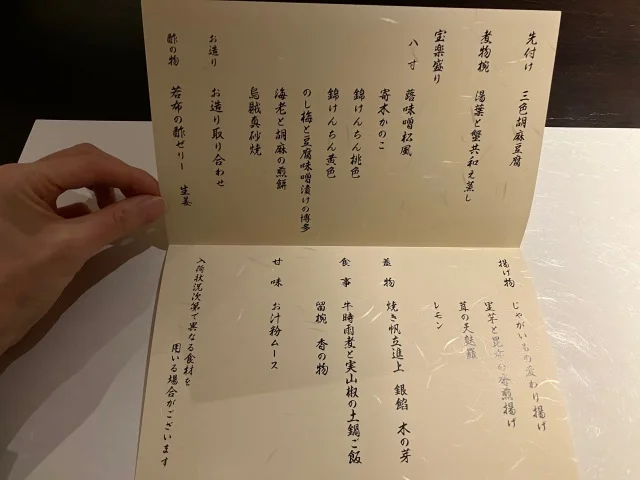 先付け 三色胡麻豆腐
煮物椀 湯葉と蟹共和え蒸し
宝楽盛り
八寸 蕗味噌松風
寄木かのこ
錦けんちん桃色
錦けんちん黄色
のし梅と豆腐味噌漬けの博多
海老と胡麻の煎餅
烏賊真砂焼
お造り お造り取り合わせ
酢の物 若布の酢ゼリー 生姜
揚げ物 じゃがいもの変わり揚げ
里芋と昆布の香煎揚げ
茸の天麩羅
レモン
蓋物 焼き帆立進上 銀餡 木の芽
食事 牛時雨煮と実山椒の土鍋ご飯
留椀 香の物
甘味 お汁粉ムース
入荷状況次第で異なる食材を
用いる場合がございます